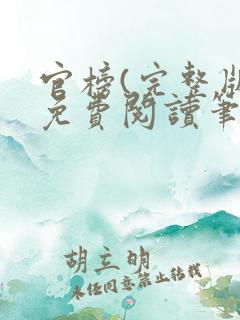 官榜(完整版
免費閱讀筆
胡立明
未經同意禁止轉載